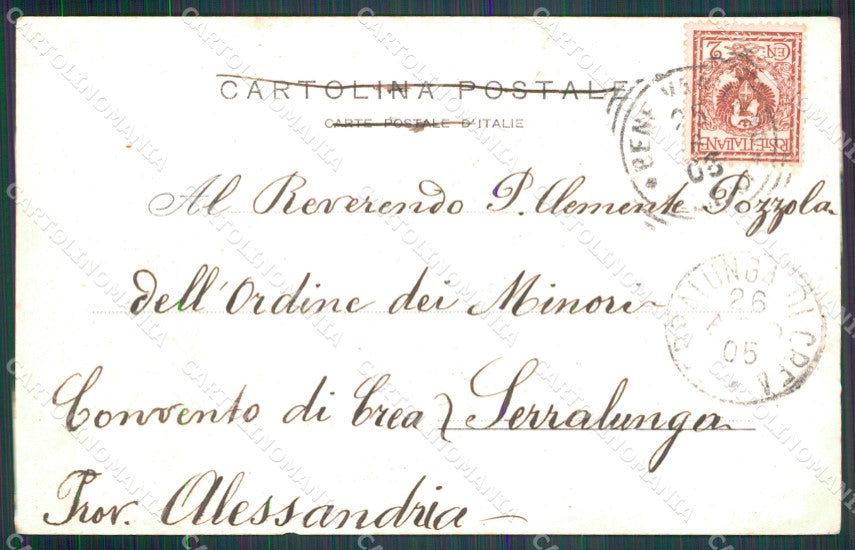 CARTOLINA POSTALE
CARTE POSTALE D'ITALIE
CEN. 2
POSTE ITALIANE
BENE VA
05
Al Reverendo P. Clemente Pozzola
dell'Ordine dei Minori
SERRALUNGA DI CREA
26
05
Convento di Crea Serralunga
Prov. Alessandria
CARTOLINOMANIA